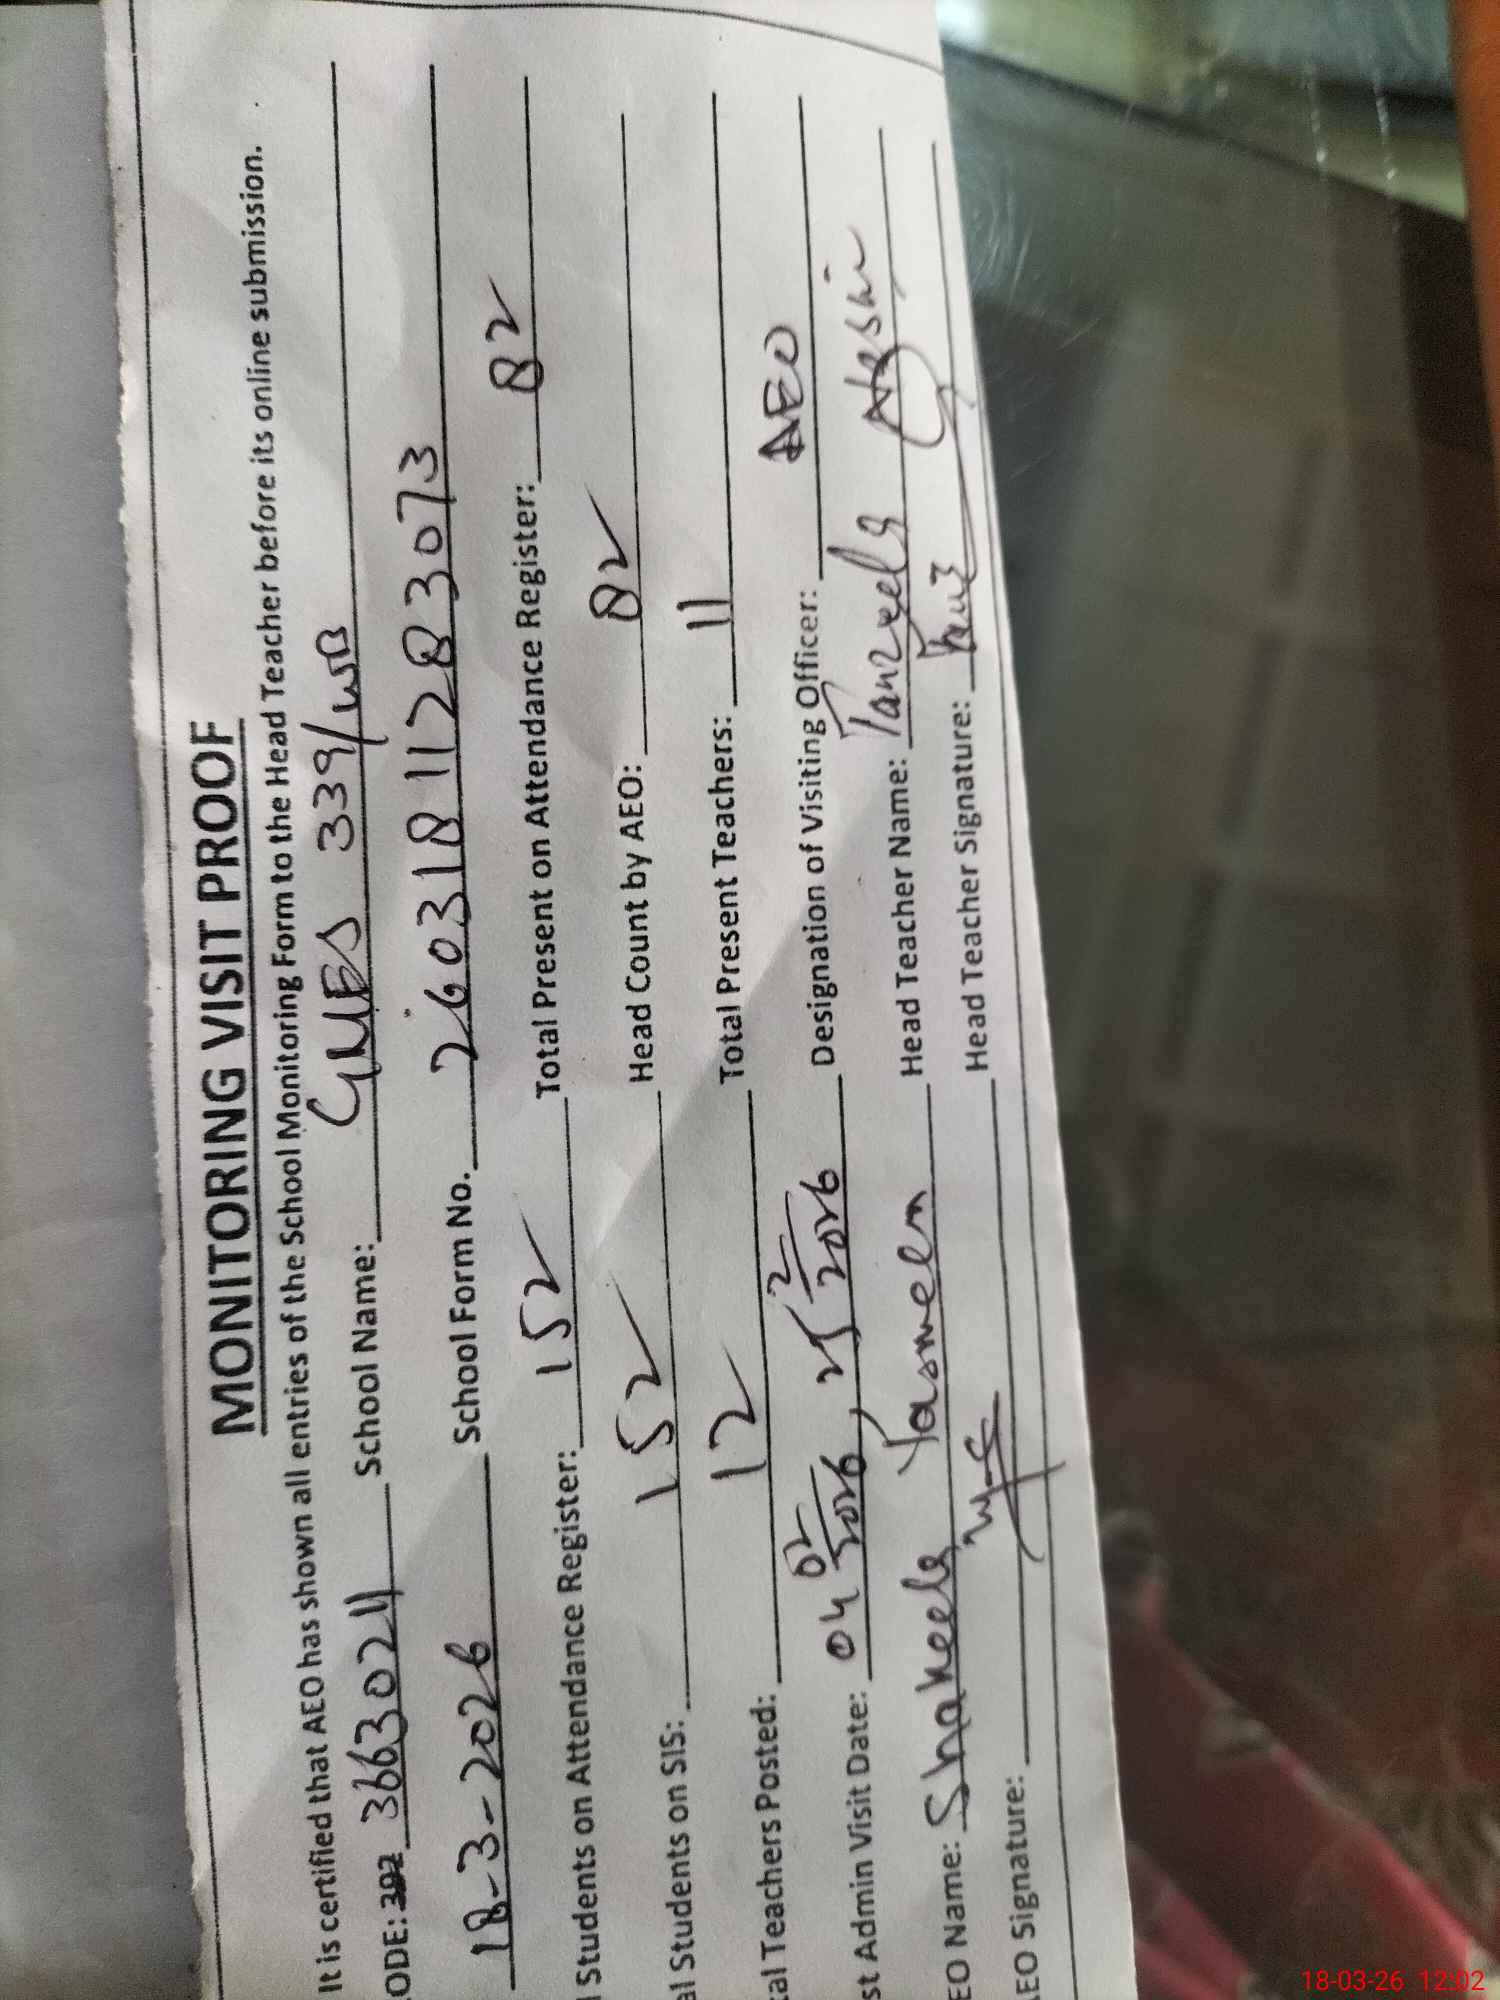 MONITORING VISIT PROOF
It is certified that AEO has shown all entries of the School Monitoring Form to the Head Teacher before its online submission.
ODE: 36630211 School Name: GMES 339/WB
18-3-2026 School Form No. 2603181128 3073
Students on Attendance Register: 152 Total Present on Attendance Register: 82
al Students on SIS: 152 Head Count by AEO: 82
tal Teachers Posted: 12 Total Present Teachers: 11
st Admin Visit Date: 04 02/2026, 25 2/2026 Designation of Visiting Officer: AEO
EO Name: Shakeela Yasmeen Head Teacher Name: Tanzeela
EO Signature: Head Teacher Signature:
18-03-26 12:02